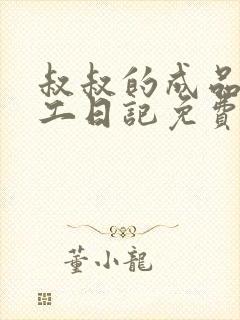 叔叔的成品
工日記免費
董小龍